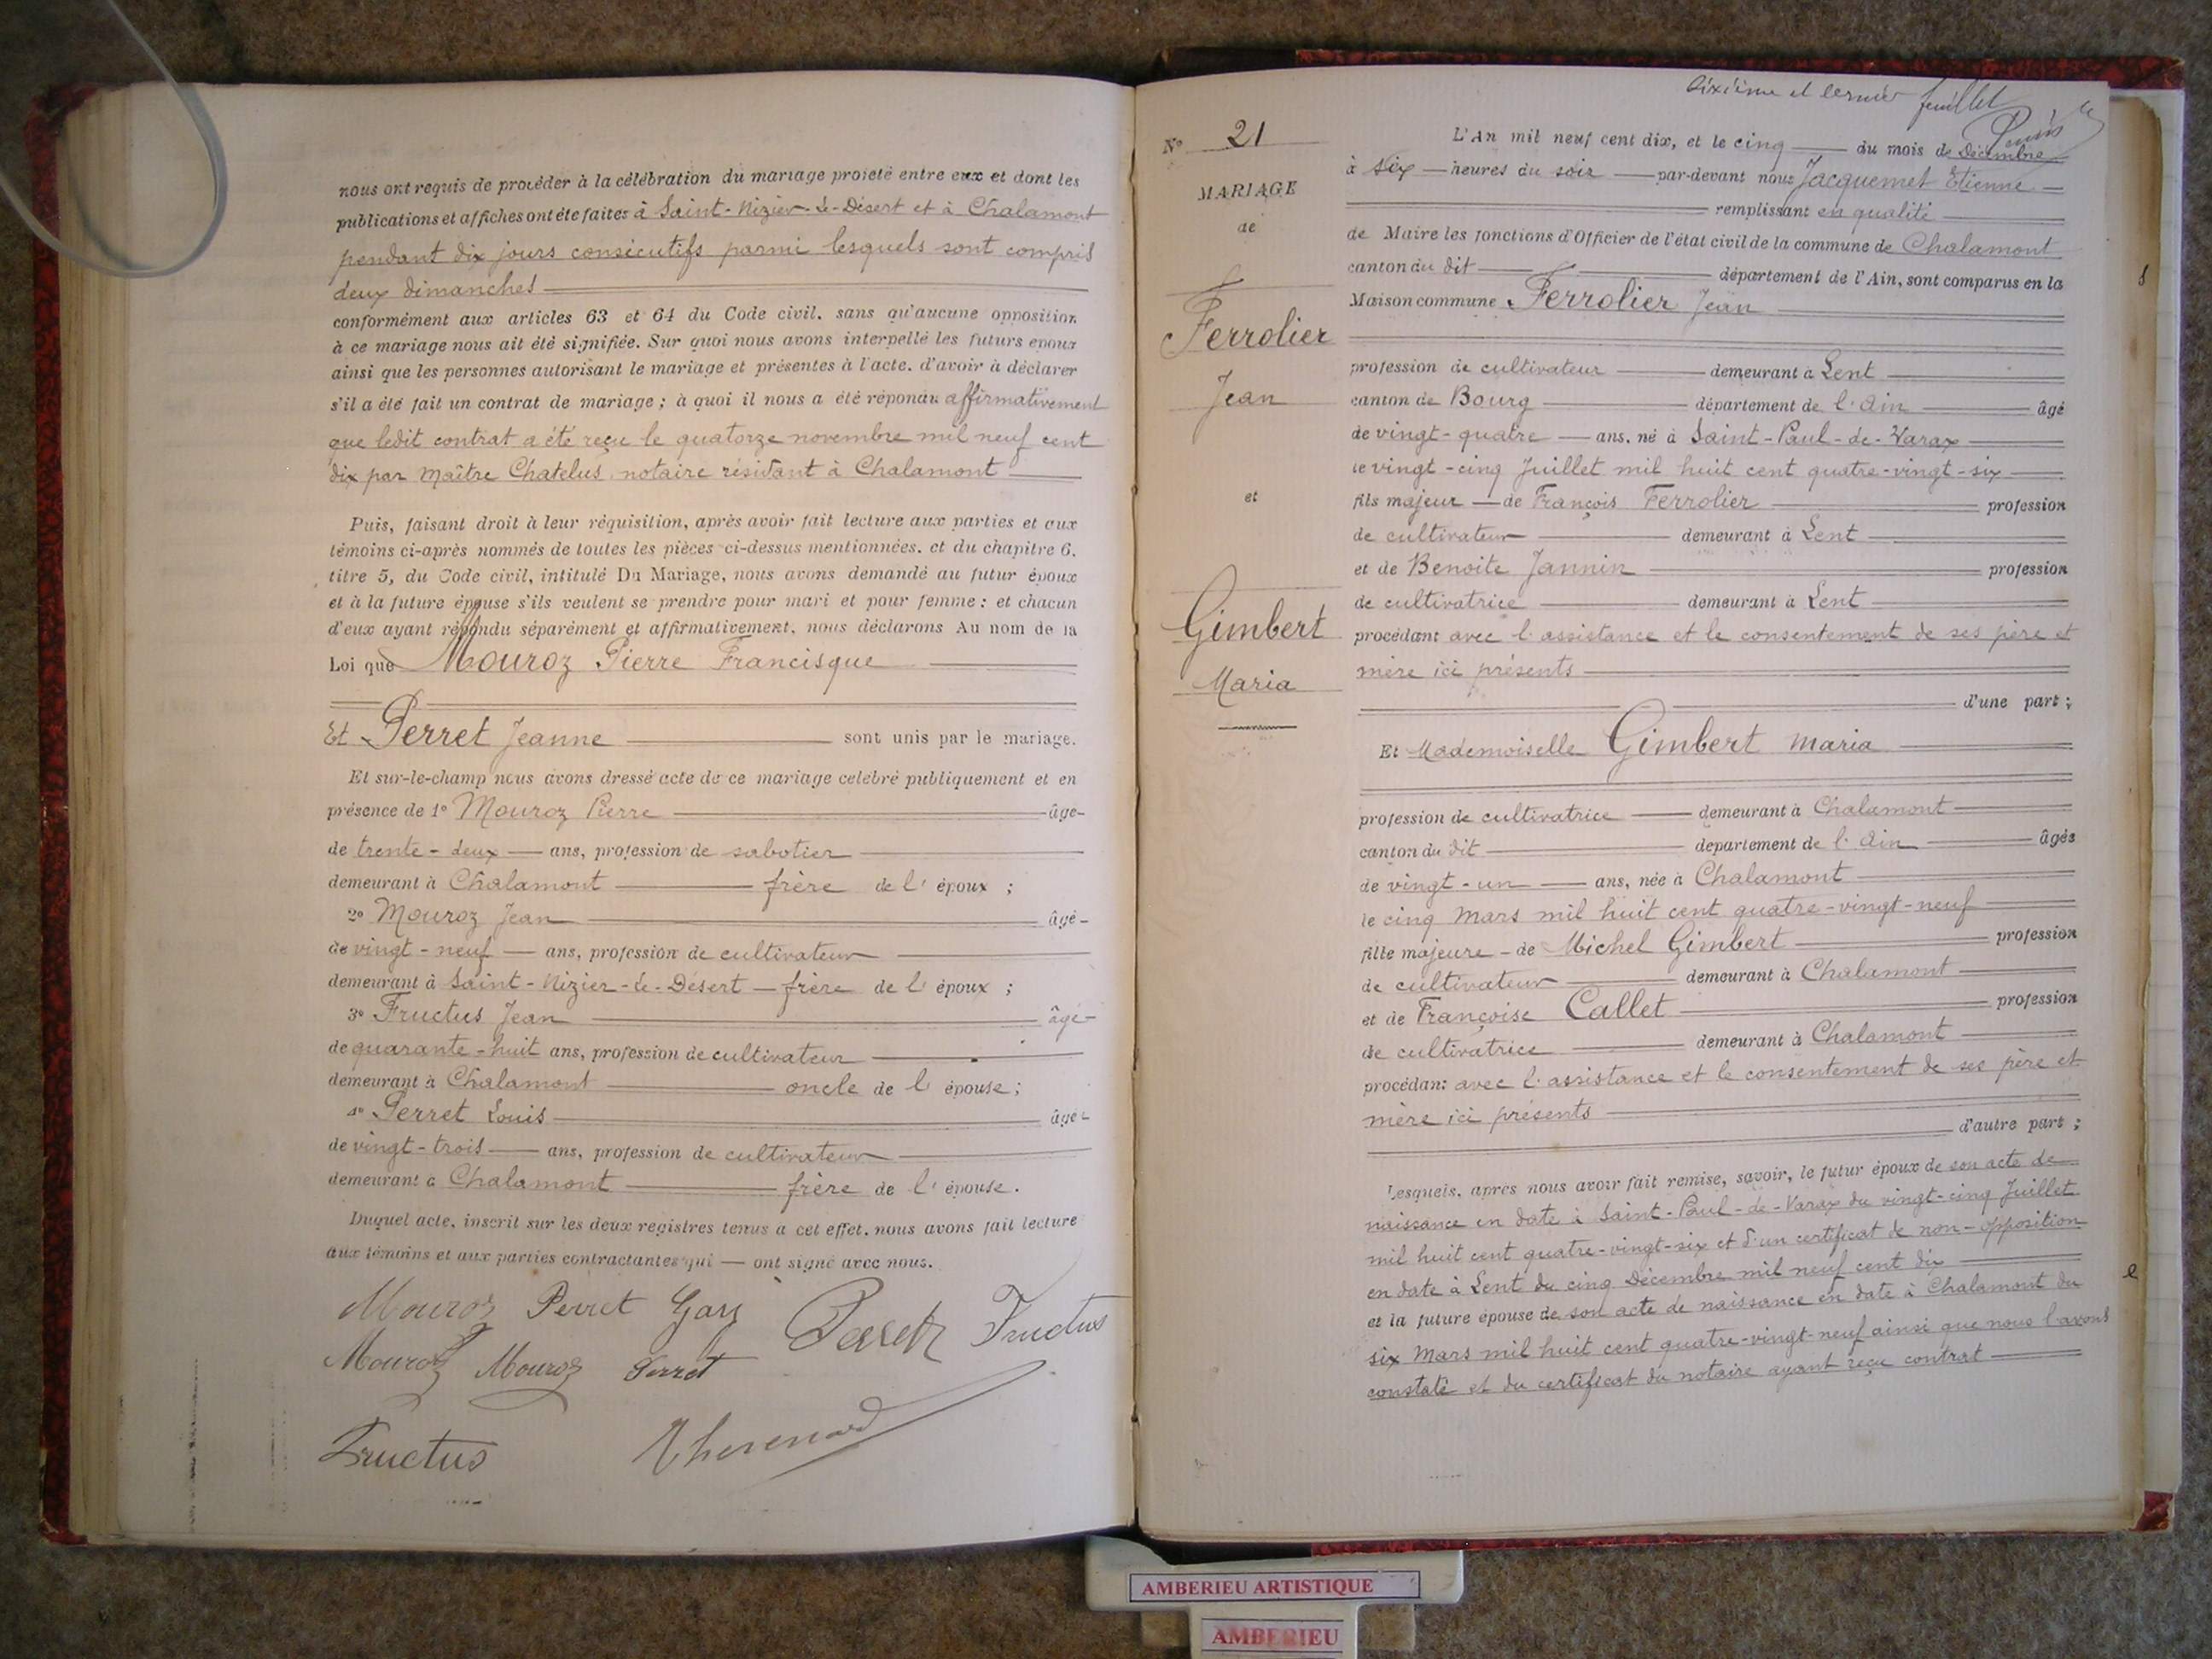 nous ont requis de procéder à la célébration du mariage projeté entre eux et dont les
publications et affiches ont été faites à Saint-Nizier-le-Désert et à Chalamont
pendant dix jours consécutifs parmi lesquels sont compris
deux dimanches
conformément aux articles 63 et 64 du Code civil, sans qu'aucune opposition
à ce mariage nous ait été signifiée. Sur quoi nous avons interpellé les futurs époux
ainsi que les personnes autorisant le mariage et présentes à l'acte, d'avoir à déclarer
s'il a été fait un contrat de mariage ; à quoi il nous a été répondu affirmativement
que ledit contrat a été reçu le quatorze novembre mil neuf cent
dix par Maître Chatelus, notaire résidant à Chalamont
Puis, faisant droit à leur réquisition, après avoir fait lecture aux parties et aux
témoins ci-après nommés de toutes les pièces ci-dessus mentionnées, et du chapitre 6,
titre 5, du Code civil, intitulé Du Mariage, nous avons demandé au futur époux
et à la future épouse s'ils veulent se prendre pour mari et pour femme : et chacun
d'eux ayant répondu séparément et affirmativement, nous déclarons Au nom de la
Loi que Mouroz Pierre Francisque
Et Perret Jeanne sont unis par le mariage.
Et sur-le-champ nous avons dressé acte de ce mariage célébré publiquement et en
présence de 1° Mouroz Pierre âgé
de trente-deux ans, profession de sabotier
demeurant à Chalamont frère de l'époux ;
2° Mouroz Jean âgé
de vingt-neuf ans, profession de cultivateur
demeurant à Saint-Nizier-le-Désert frère de l'époux ;
3° Fructus Jean âgé
de quarante-huit ans, profession de cultivateur
demeurant à Chalamont oncle de l'épouse ;
4° Perret Louis âgé
de vingt-trois ans, profession de cultivateur
demeurant à Chalamont frère de l'épouse.
Duquel acte, inscrit sur les deux registres tenus à cet effet, nous avons fait lecture
aux témoins et aux parties contractantes qui ont signé avec nous.
Mouroz Perret Perret Fructus
Mouroz Mouroz Perret
Fructus
Dixième et dernier feuillet
N° 21
MARIAGE
de
Ferrolier
Jean
et
Gimbert
Maria
L'An mil neuf cent dix, et le cinq du mois de Décembre
à six heures du soir par-devant nous Jacquemet Etienne
remplissant en qualité
de Maire les fonctions d'Officier de l'état civil de la commune de Chalamont
canton du dit département de l'Ain, sont comparus en la
Maison commune Ferrolier Jean
profession de cultivateur demeurant à Lent
canton de Bourg département de l'Ain âgé
de vingt-quatre ans, né à Saint-Paul-de-Varax
le vingt-cinq Juillet mil huit cent quatre-vingt-six
fils majeur de François Ferrolier profession
de cultivateur demeurant à Lent
et de Benoite Jannin profession
de cultivatrice demeurant à Lent
procédant avec l'assistance et le consentement de ses père et
mère ici présents
d'une part ;
Et Mademoiselle Gimbert Maria
profession de cultivatrice demeurant à Chalamont
canton du dit département de l'Ain âgée
de vingt-un ans, née à Chalamont
le cinq Mars mil huit cent quatre-vingt-neuf
fille majeure de Michel Gimbert profession
de cultivateur demeurant à Chalamont
et de Françoise Callet profession
de cultivatrice demeurant à Chalamont
procédant avec l'assistance et le consentement de ses père et
mère ici présents
d'autre part ;
Lesquels, après nous avoir fait remise, savoir, le futur époux de son acte de
naissance en date à Saint-Paul-de-Varax du vingt-cinq Juillet
mil huit cent quatre-vingt-six et d'un certificat de non-opposition
en date à Lent du cinq Décembre mil neuf cent dix
et la future épouse de son acte de naissance en date à Chalamont du
six Mars mil huit cent quatre-vingt-neuf ainsi que nous l'avons
constaté et du certificat du notaire ayant reçu contrat
AMBERIEU ARTISTIQUE
AMBERIEU